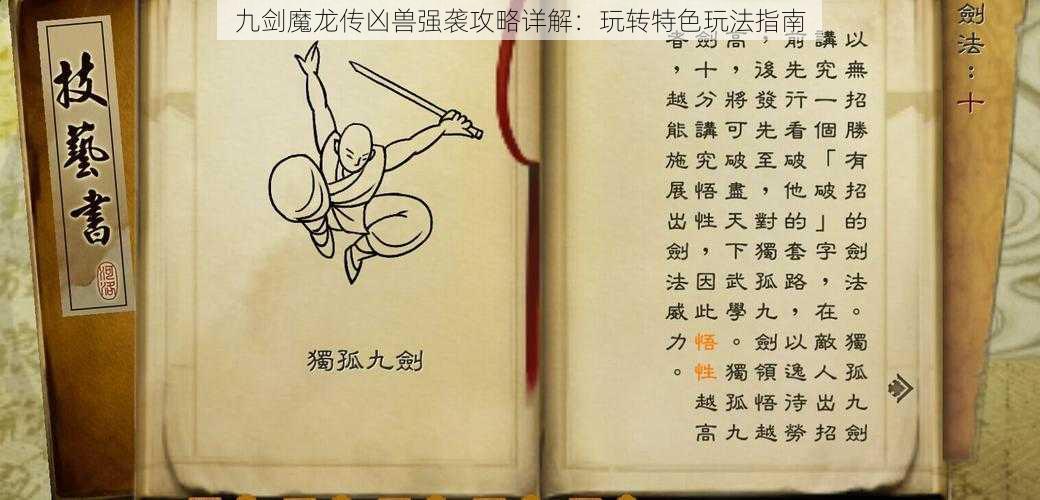 九剑魔龙传凶兽强袭攻略详解：玩转特色玩法指南
技藝書
河洛
獨孤九劍
劍法：十
以無招勝有招的劍法。獨孤九劍
講究一個「破」字，在敵人出招
前先行看破他的套路，以逸待勞
，後發先至，對獨孤九劍領悟越
高，將可破盡天下武學。獨孤九
劍十分講究悟性，因此悟性越高
者，越能施展出劍法威力。